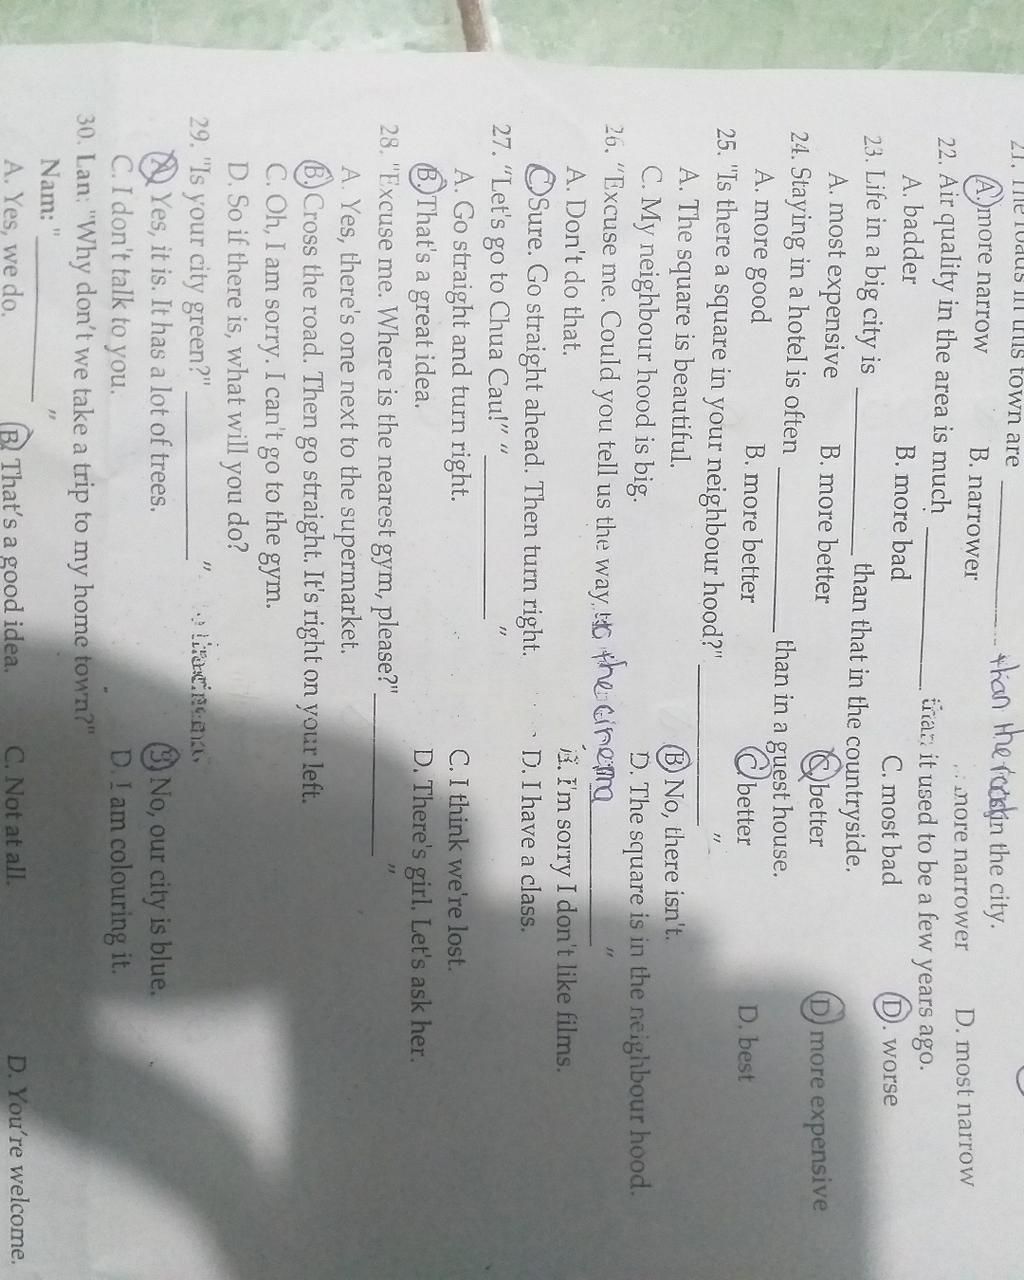 21. The roads in this town are ________ than the road in the city.
A. more narrow B. narrower more narrower D. most narrow
22. Air quality in the area is much ________ than it used to be a few years ago.
A. badder B. more bad C. most bad D. worse
23. Life in a big city is ________ than that in the countryside.
A. most expensive B. more better C. better D. more expensive
24. Staying in a hotel is often ________ than in a guest house.
A. more good B. more better C. better D. best
25. "Is there a square in your neighbour hood?" ________ "
A. The square is beautiful. B. No, there isn't.
C. My neighbour hood is big. D. The square is in the neighbour hood.
26. "Excuse me. Could you tell us the way to the cinema ________ "
A. Don't do that. I'm sorry I don't like films.
C. Sure. Go straight ahead. Then turn right. D. I have a class.
27. "Let's go to Chua Cau!" " ________ "
A. Go straight and turn right. C. I think we're lost.
B. That's a great idea. D. There's girl. Let's ask her.
28. "Excuse me. Where is the nearest gym, please?" ________ "
A. Yes, there's one next to the supermarket.
B. Cross the road. Then go straight. It's right on your left.
C. Oh, I am sorry. I can't go to the gym.
D. So if there is, what will you do?
29. "Is your city green?" ________ "
A. Yes, it is. It has a lot of trees. B. No, our city is blue.
C. I don't talk to you. D. I am colouring it.
30. Lan: "Why don't we take a trip to my home town?"
Nam: " ________ "
A. Yes, we do. B. That's a good idea. C. Not at all. D. You're welcome.